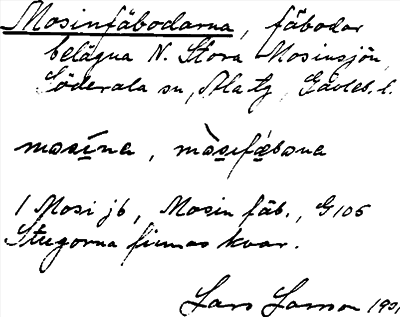 Mosinfäbodarna, fäbodar
belägna N. Stora Mosinsjön,
Söderala sn, Ala tg, Gävleb. l.
masína, màsıfæbona
1 Mosi jb, Mosin fäb., G 105
Stugorna finnas kvar.
Lars Larson